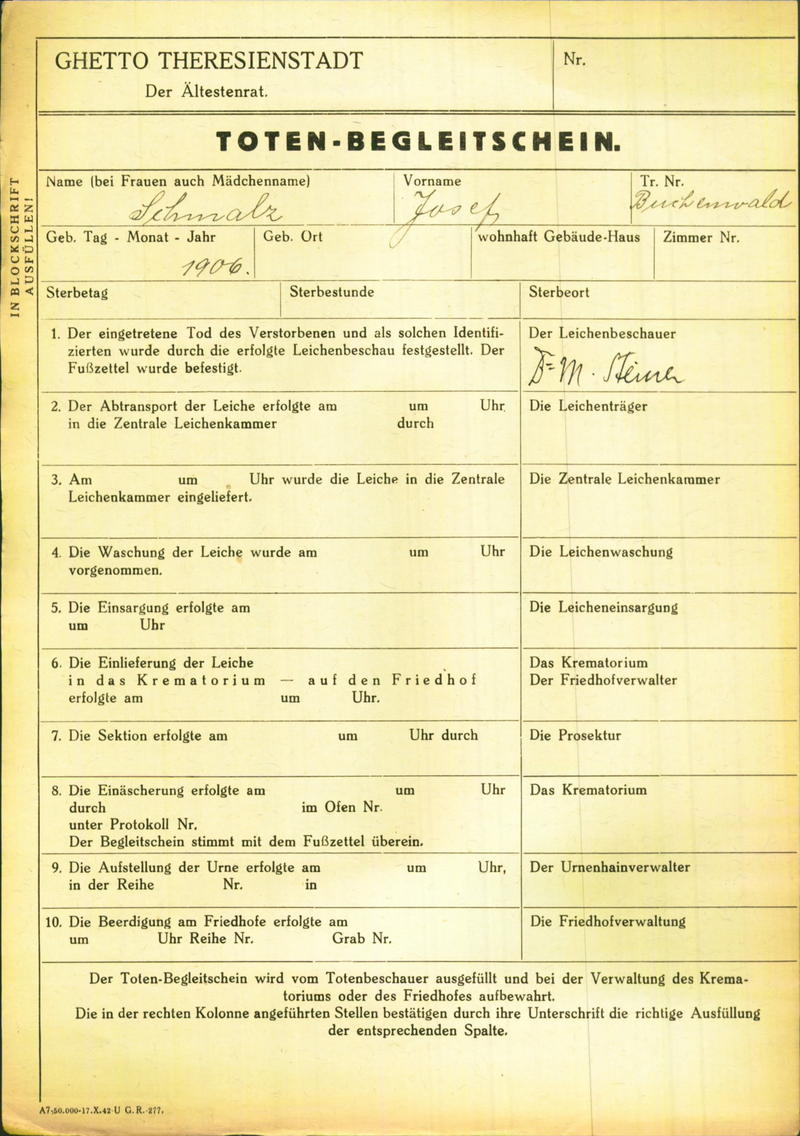 GHETTO THERESIENSTADT
Der Ältestenrat.
Nr.
TOTEN-BEGLEITSCHEIN.
IN BLOCKSCHRIFT
AUSFÜLLEN!
Name (bei Frauen auch Mädchenname)
Schmalz
Vorname
Josef
Tr. Nr.
Buchenwald
Geb. Tag - Monat - Jahr
1906.
Geb. Ort
wohnhaft Gebäude-Haus
Zimmer Nr.
Sterbetag
Sterbestunde
Sterbeort
1. Der eingetretene Tod des Verstorbenen und als solchen Identifi-
zierten wurde durch die erfolgte Leichenbeschau festgestellt. Der
Fußzettel wurde befestigt.
Der Leichenbeschauer
Dr M. Steiner
2. Der Abtransport der Leiche erfolgte am um Uhr
in die Zentrale Leichenkammer durch
Die Leichenträger
3. Am um Uhr wurde die Leiche in die Zentrale
Leichenkammer eingeliefert.
Die Zentrale Leichenkammer
4. Die Waschung der Leiche wurde am um Uhr
vorgenommen.
Die Leichenwaschung
5. Die Einsargung erfolgte am
um Uhr
Die Leicheneinsargung
6. Die Einlieferung der Leiche
in das Krematorium — auf den Friedhof
erfolgte am um Uhr.
Das Krematorium
Der Friedhofverwalter
7. Die Sektion erfolgte am um Uhr durch
Die Prosektur
8. Die Einäscherung erfolgte am um Uhr
durch im Ofen Nr.
unter Protokoll Nr.
Der Begleitschein stimmt mit dem Fußzettel überein.
Das Krematorium
9. Die Aufstellung der Urne erfolgte am um Uhr,
in der Reihe Nr. in
Der Urnenhainverwalter
10. Die Beerdigung am Friedhofe erfolgte am
um Uhr Reihe Nr. Grab Nr.
Die Friedhofverwaltung
Der Toten-Begleitschein wird vom Totenbeschauer ausgefüllt und bei der Verwaltung des Krema-
toriums oder des Friedhofes aufbewahrt.
Die in der rechten Kolonne angeführten Stellen bestätigen durch ihre Unterschrift die richtige Ausfüllung
der entsprechenden Spalte.
A7-50.000-17.X.42 U G.R.-277.